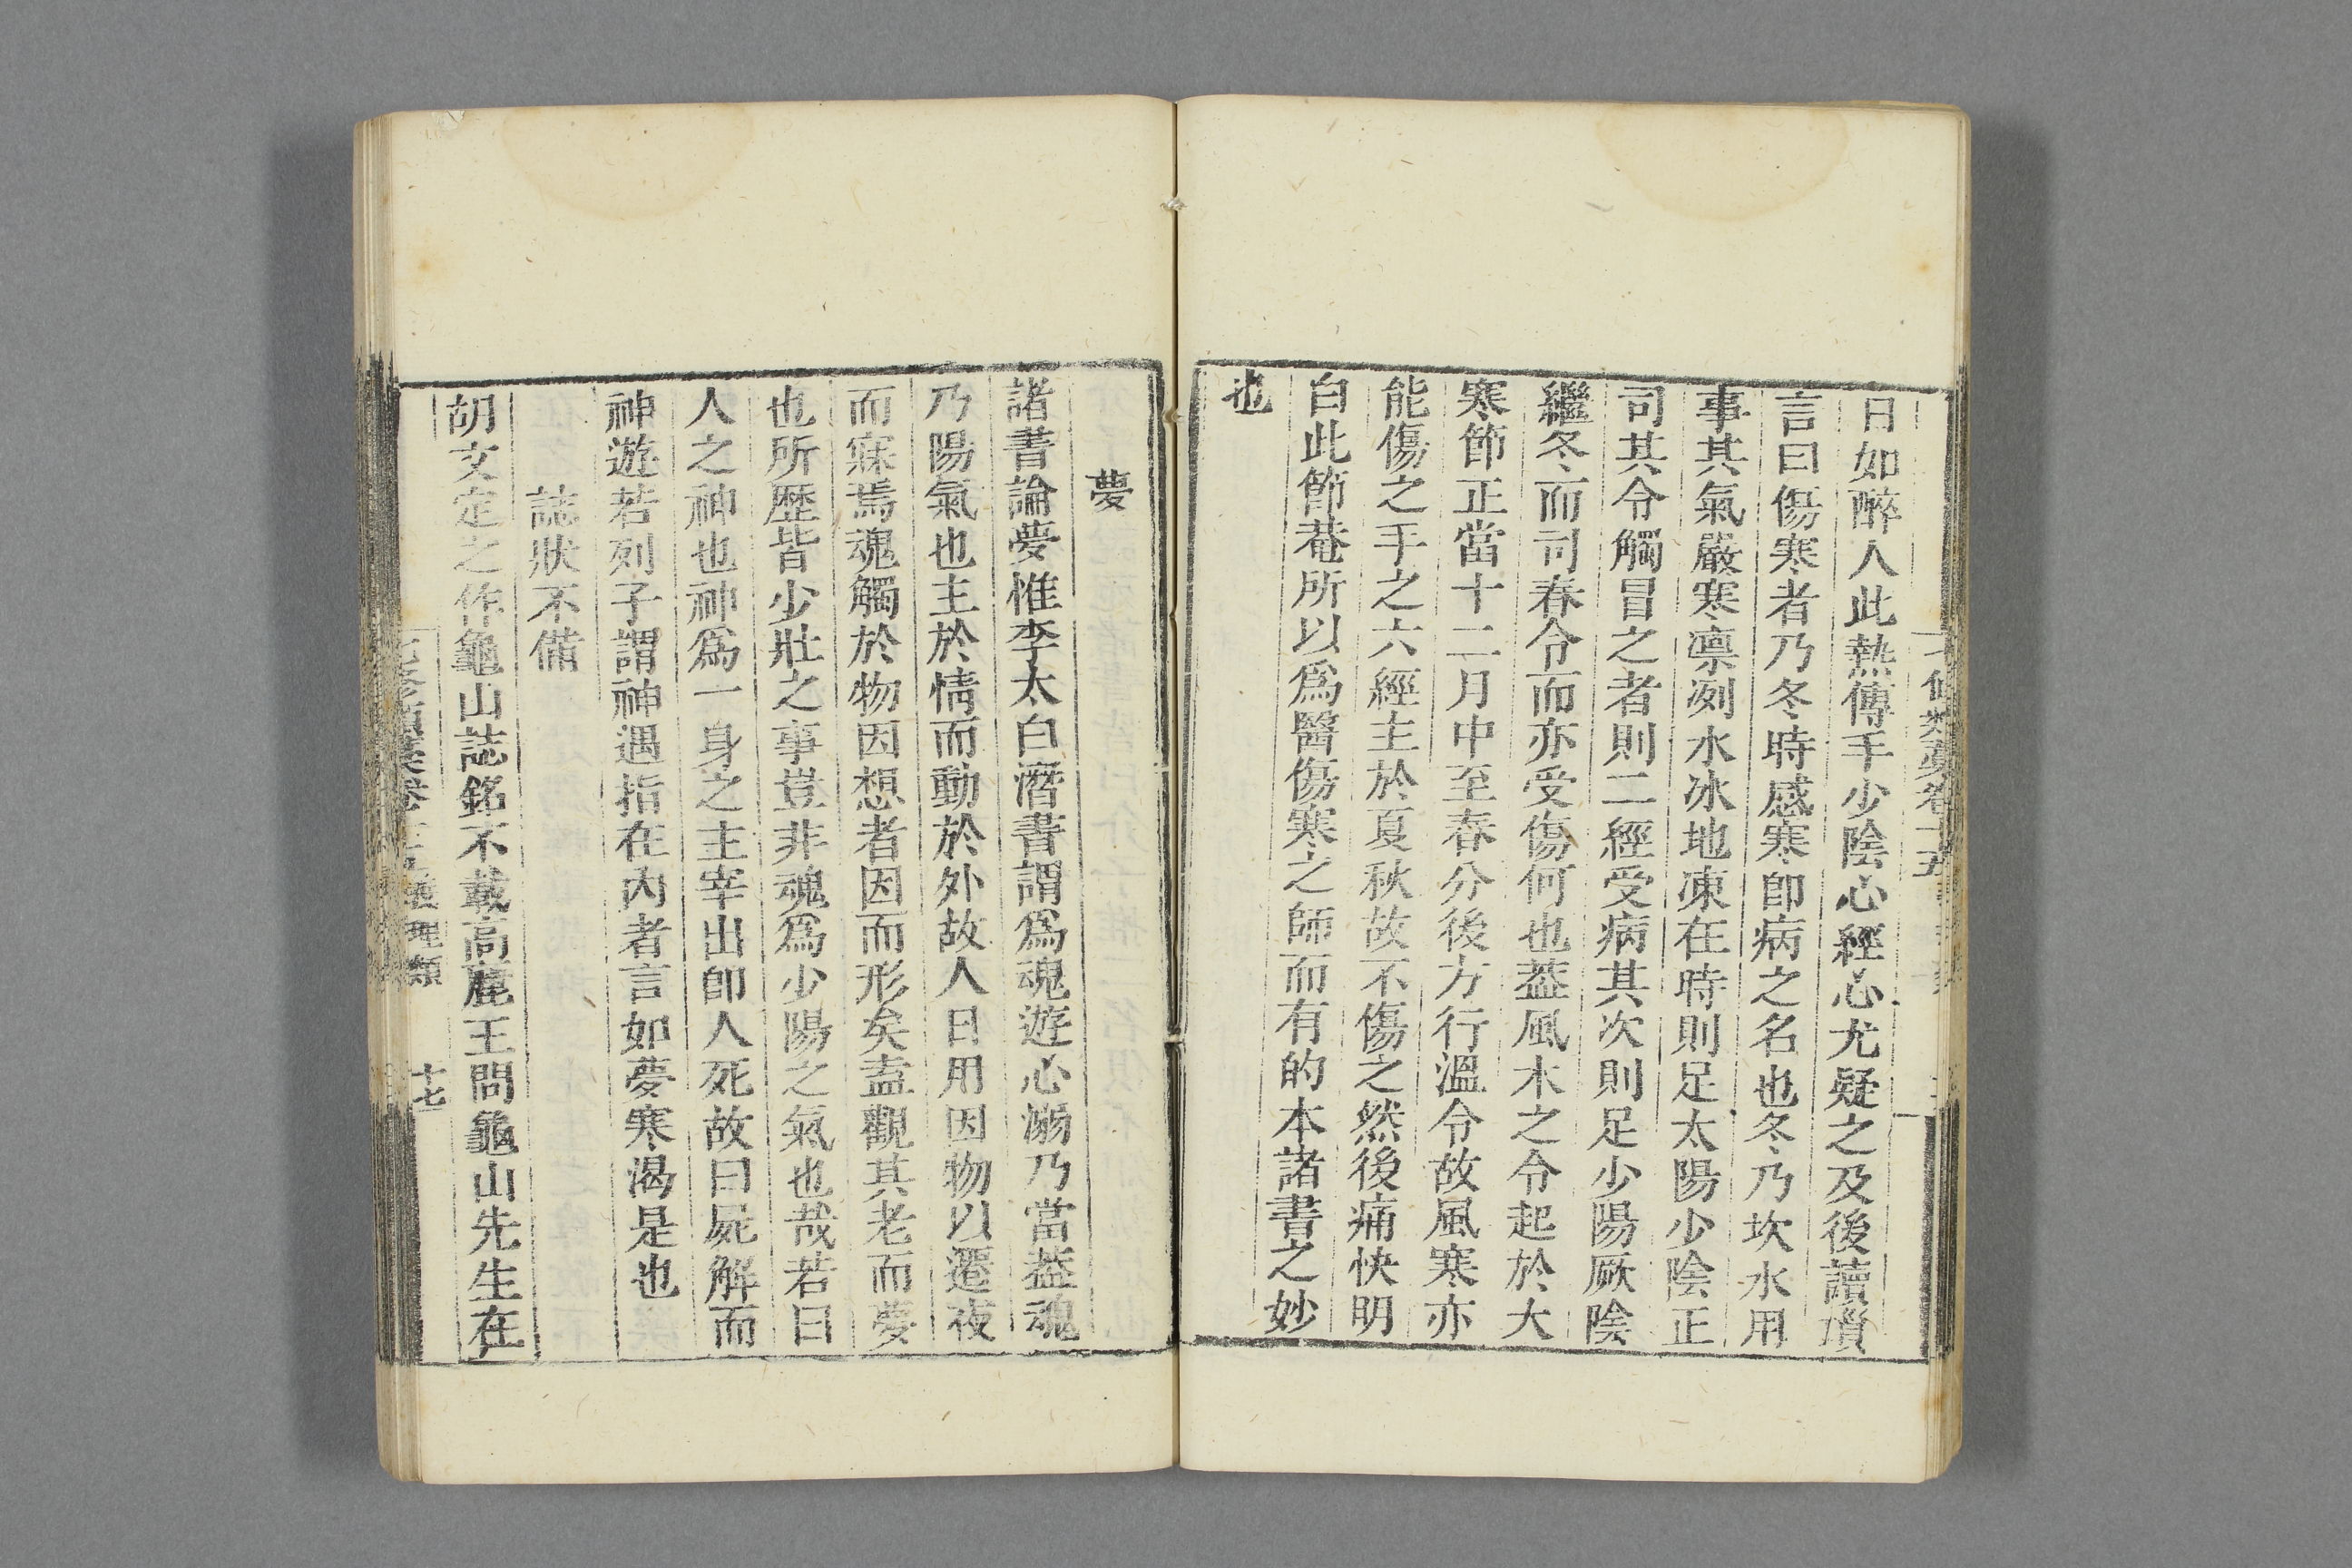 日如醉人此熱傳手少陰心經心尤疑之及後讀瑣
言曰傷寒者乃冬時感寒卽病之名也冬乃坎水用
事其氣嚴寒凛冽水冰地凍在時則足太陽少陰正
司其令觸冒之者則二經受病其次則足少陽厥陰
繼冬而司春令而亦受傷何也葢風木之令起於大
寒節正當十二月中至春分後方行溫令故風寒亦
能傷之手之六經主於夏秋故不傷之然後痛快明
白此節菴所以爲醫傷寒之師而有的本諸書之妙
也
夢
諸書論夢惟李太白濳書謂爲魂遊心溺乃當葢魂
乃陽氣也主於情而動於外故人日用因物以遷夜
而寐焉魂觸於物因想者因而形矣盍觀其老而夢
也所歷皆少壯之事豈非魂爲少陽之氣也哉若曰
人之神也神爲一身之主宰出卽人死故曰屍解而
神遊若列子謂神遇指在內者言如夢寒渴是也
誌狀不備
胡文定之作龜山誌銘不載高麗王問龜山先生在
十七